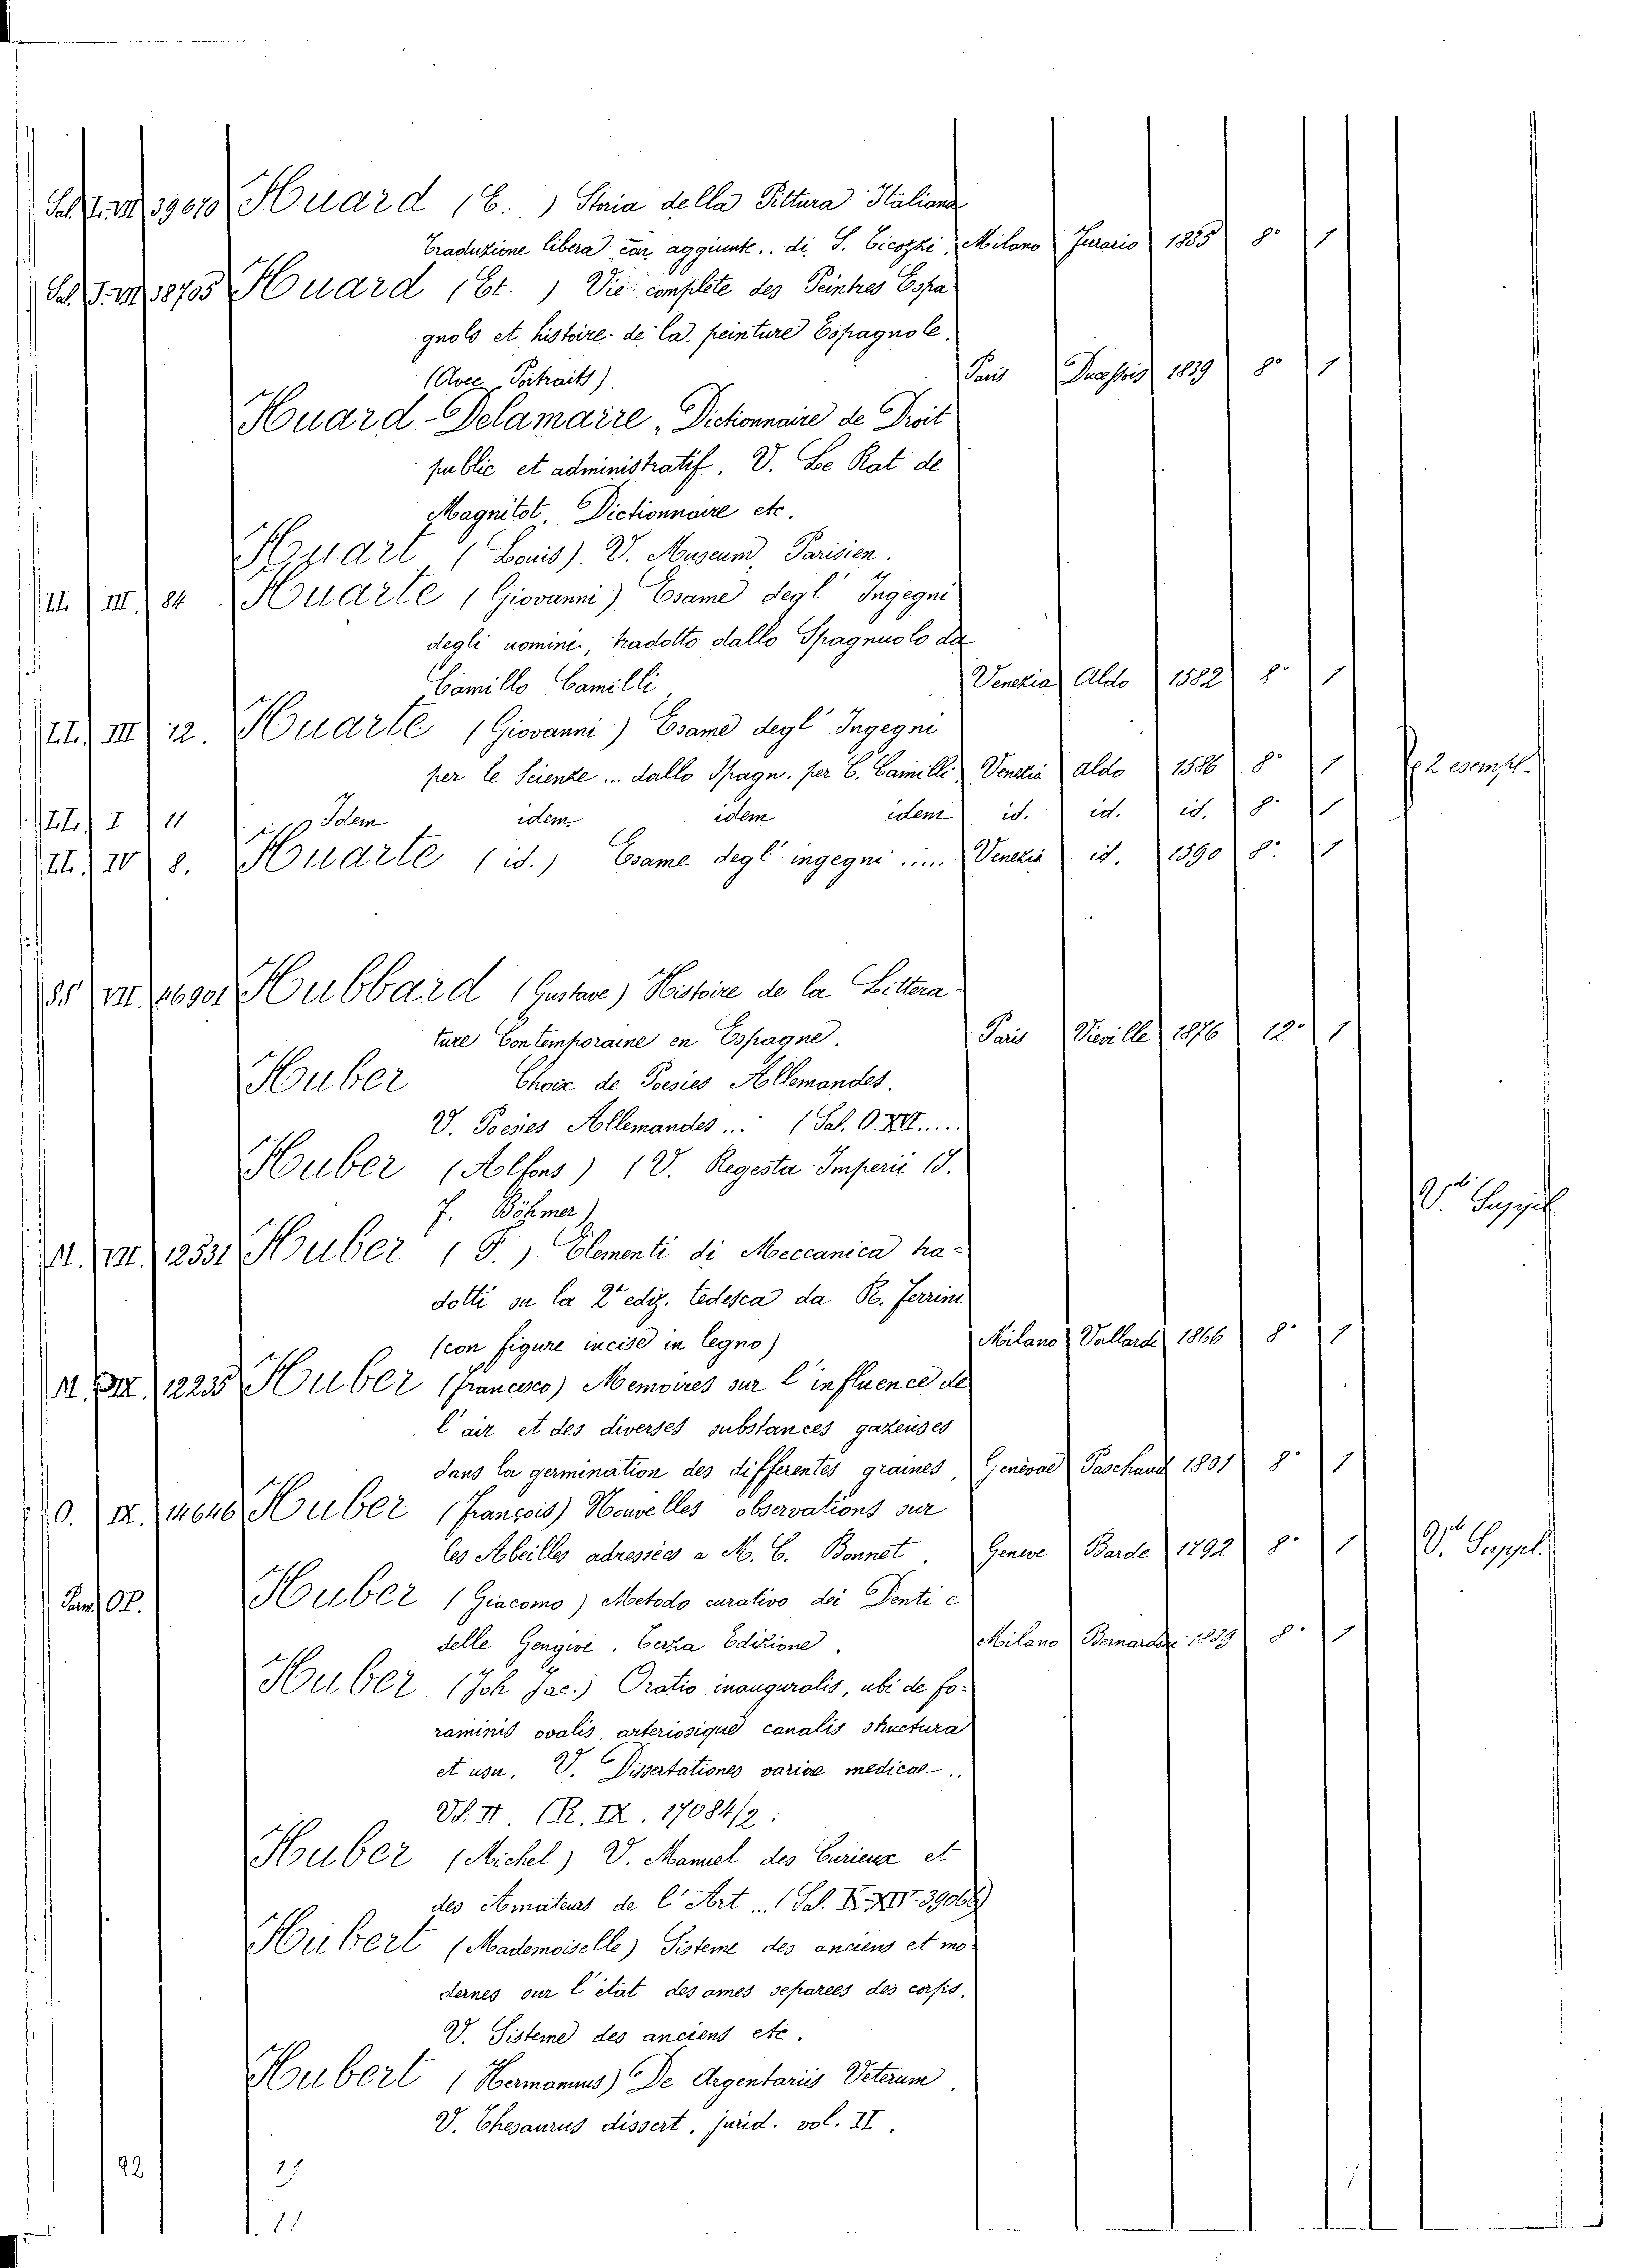 Sal. T. VII. 39610 Huard (C. ) Storia della Pittura Italiana
Traduzione libera con aggiunte.. di S. Ticozzi, Milano 1835 8° 1
Sal. T. VII. 38705 Huard (Et. ) Vie complete des Peintres Espa
gnols et histoire de la peinture Espagnole.
(Avec Portraits). Paris 1839 8° 1
Huard-Delamaire, Dictionnaire de Droit
public et administratif. V. Le Rat de
Magnitot, Dictionnaire etc.
Huart (Louis). V. Museum Parisien.
III. 84 Huarte (Giovanni) Esame degl' Ingegni
degli uomini, tradotto dallo Spagnuolo da
Camillo Camilli Venezia Aldo 1582 8° 1
III 12. Huarte (Giovanni) Esame degl' Ingegni
per le Scienze ... dallo Spagn. per C. Camilli Venezia Aldo 1586 8° 1 2 esempl.
I 11 Idem idem idem idem id. id. id. 8° 1
IV 8. Huarte (id.) Esame degl' ingegni .... Venezia id. 1590 8° 1
VII. Hubbard (Gustave) Histoire de la Littera-
ture Contemporaine en Espagne. Paris Vieville 1876 12° 1
Huber Choix de Poesies Allemandes.
V. Poesies Allemandes ... (Sal. O. XII.....
Huber (Alfons) (V. Regesta Imperii 13.
J. Böhmer)
VII. 12531 Huber (F.). Elementi di Meccanica tra-
dotti su la 2ª ediz. tedesca da R. Ferrini
(con figure incise in legno) Milano Vallardi 1866 8° 1
12235 Huber (Francesco) Memoires sur l'influence de
l'air et des diverses substances gazeuses
dans la germination des differentes graines, Genevae Paschaud 1801 8° 1
O. IX. 14646 Huber (François) Nouvelles observations sur
les Abeilles adressées a M. C. Bonnet. Geneve Barde 1792 8° 1 V. Suppl.
Huber (Giacomo) Metodo curativo dei Denti e
delle Gengive. Terza Edizione. Milano 1839 8° 1
Huber (Joh Jac.) Oratio inauguralis, ubi de fo-
raminis ovalis, arteriosique canalis structura
et usu. V. Dissertationes variae medicae..
Vol. II. (R. IX. 17084/2:
Huber (Michel) V. Manuel des Curieux et
des Amateurs de l'Art ... (Sal. K. XIV. 39066)
Hubert (Mademoiselle) Sisteme des anciens et mo-
dernes sur l'état des ames separees des corps.
V. Sisteme des anciens etc.
Hubert (Hermannus) De Argentariis Veterum.
V. Thesaurus dissert. jurid. vol. II.
V. Suppl.
92
21